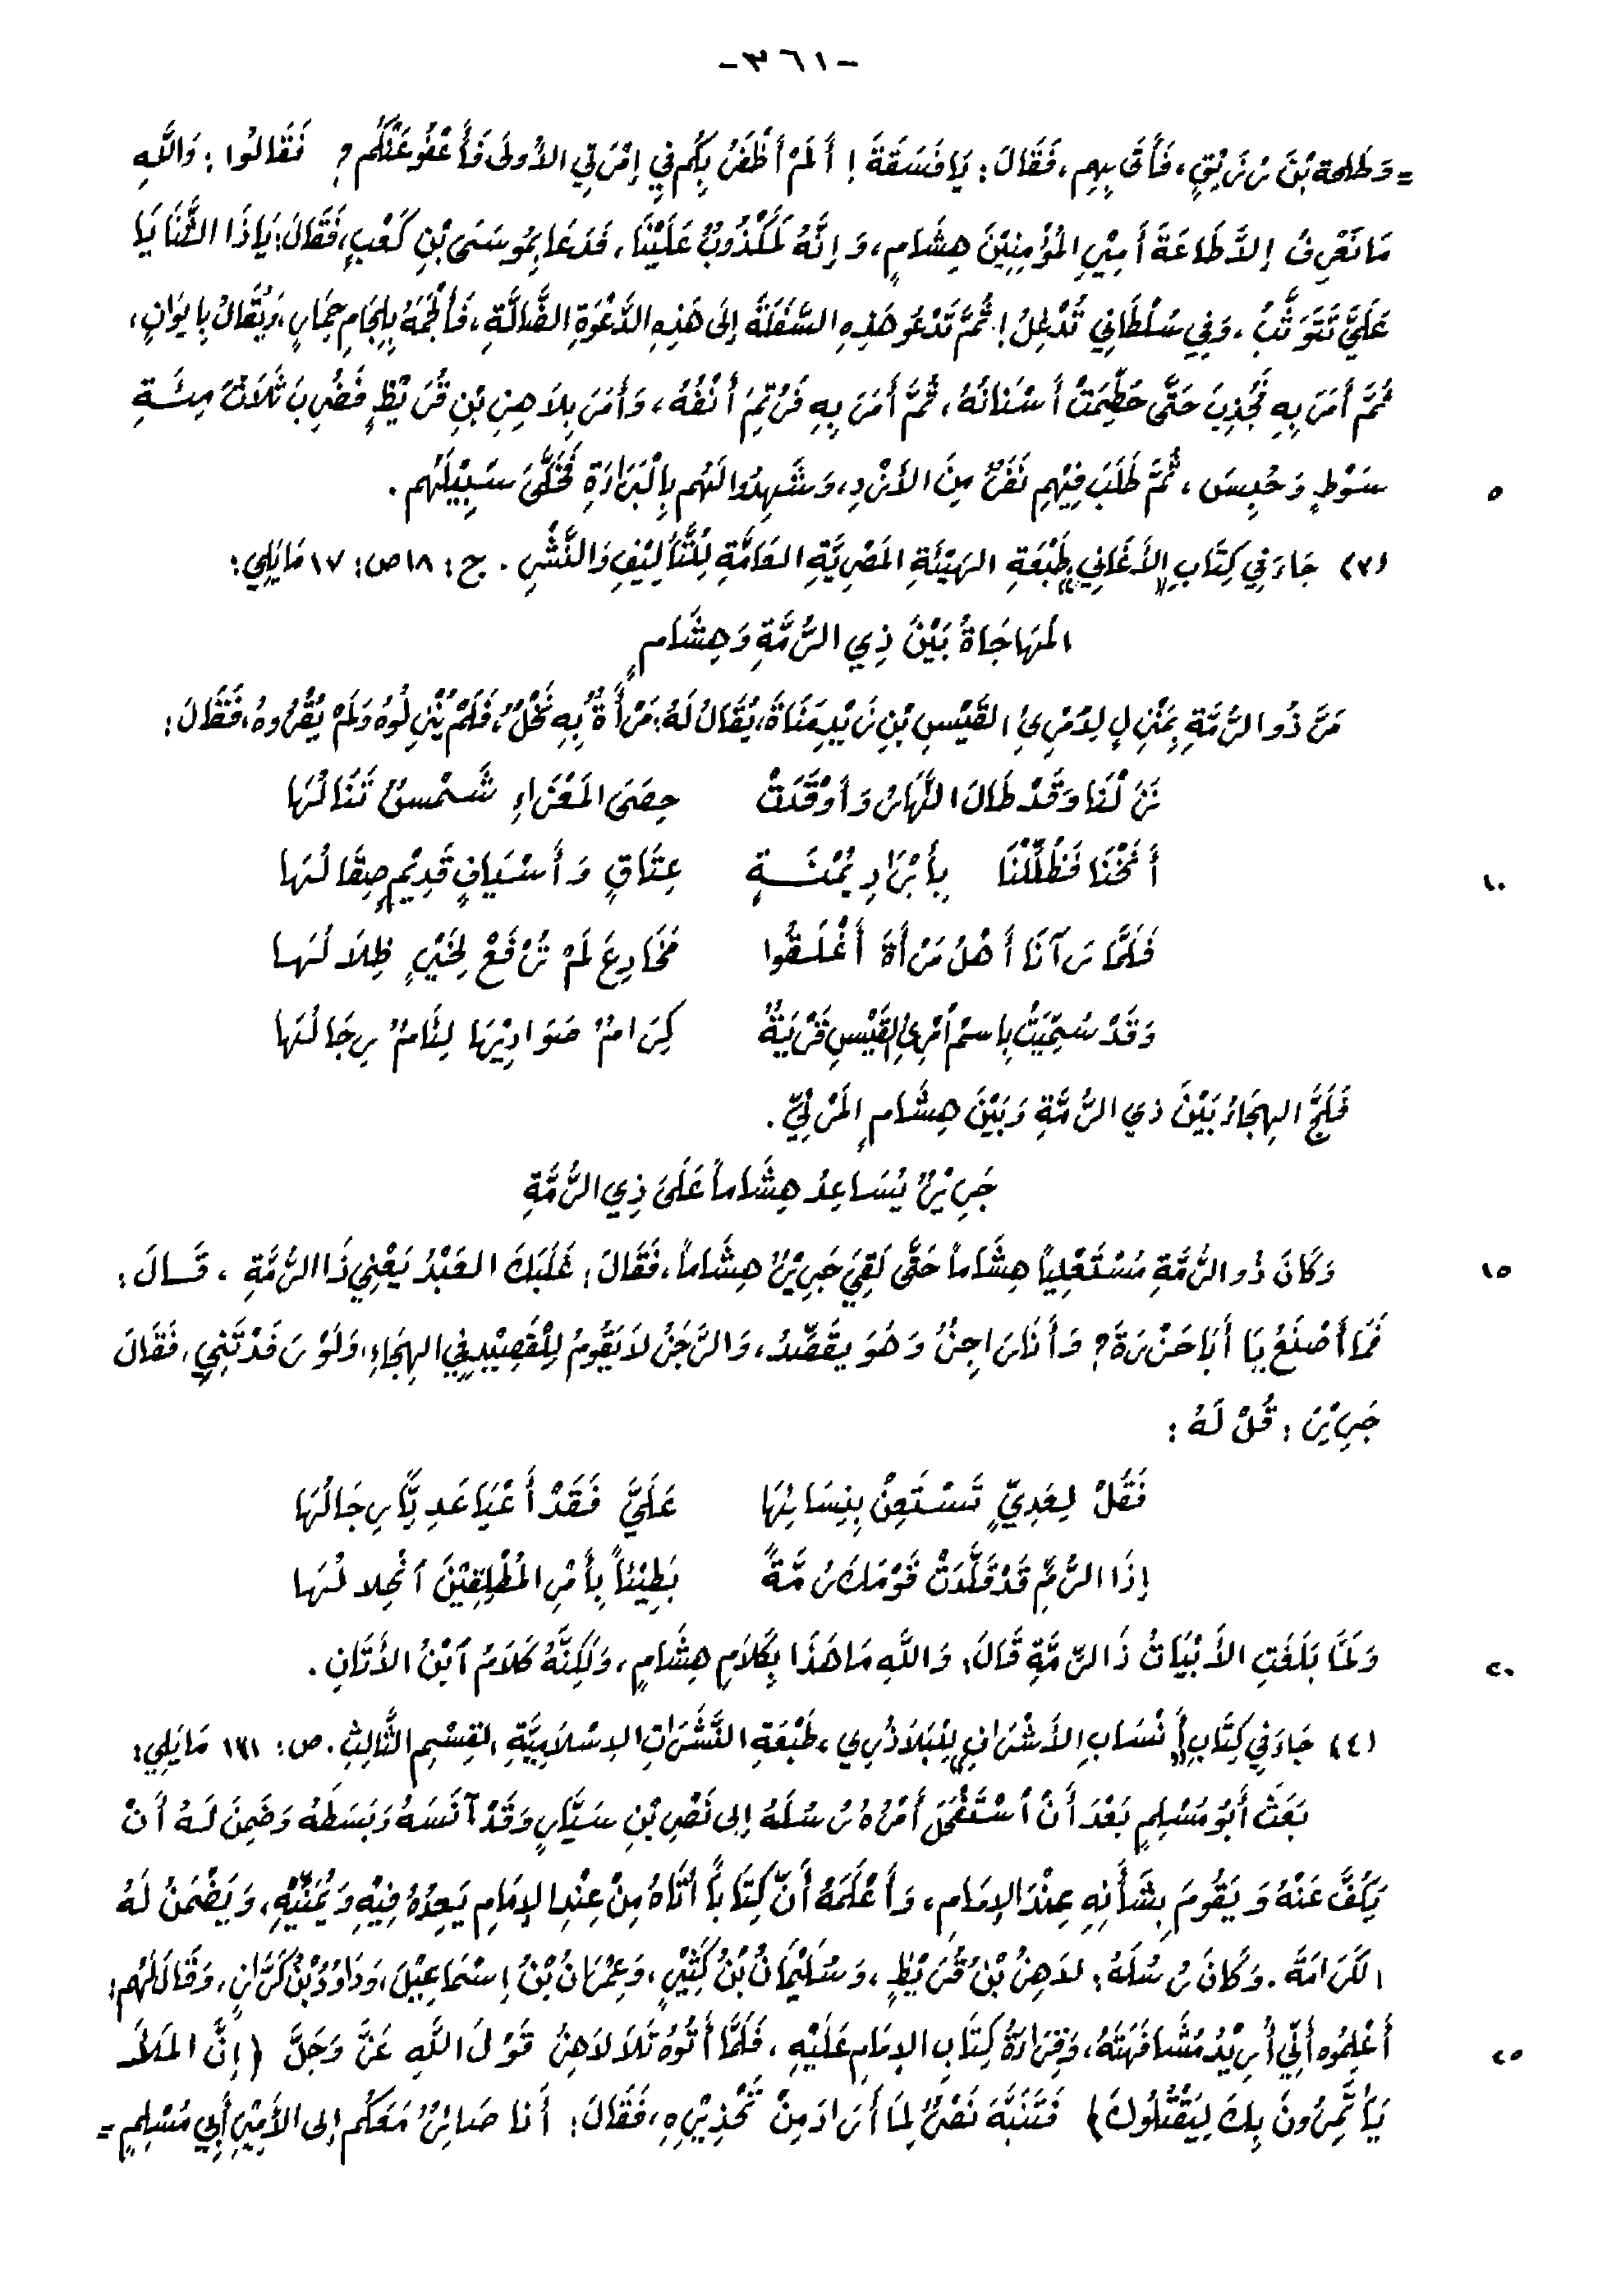 -٣٦١-
= وَطَلحة بْنَ زُرَيْقٍ، فَأَتَى بِهِم، فَقَالَ: يَا فَسَقَةَ! أَلَمْ أَظْفَرْ بِكُم فِي إِمْرَتِي الأُولَى فَأَعْفُو عَنْكُم؟ فَقَالُوا: وَاللَّهِ
مَا نَعْرِفُ إِلاَّ طَاعَةَ أَمِيْرِ المُؤْمِنِيْنَ هِشَامٍ، وَإِنَّهُ لَمَكْذُوبٌ عَلَيْنَا، فَدَعَا بِمُوسَى بْنِ كَعْبٍ، فَقَالَ: يَا ذَا الثَّنَايَا
عَلَيَّ تَتَوَثَّبُ، وَفِي سُلْطَانِي تُدْغِلُ! ثُمَّ تَدْعُو هَذِهِ السَّفَلَةَ إِلَى هَذِهِ الدَّعْوَةِ الضَّالَّةِ، فَأَلْجَمَهُ بِلِجَامِ حِمَارٍ، وَيُقَالُ بِإيوَانٍ،
ثُمَّ أَمَرَ بِهِ فَجُذِبَ حَتَّى حَطِّمَتْ أَسْنَانُهُ، ثُمَّ أَمَرَ بِهِ فَرُتِمَ أَنْفُهُ، وَأَمَرَ بِلاَهِزِ بْنِ قُرَيْظٍ فَضُرِبَ ثَلاَثَ مِئَةِ
سَوْطٍ وَحُبِسَ، ثُمَّ طَلَبَ فِيْهِم نَفَرٌ مِنَ الأَزْدِ، وَشَهِدُوا لَهُم بِالْبَرَاءَةِ فَخَلَّى سَبِيْلَهُم. ٥
(٣) جَاءَ فِي كِتَابِ «الأَغَانِي» طَبْعَةِ الهَيْئَةِ المَصْرِيَّةِ العَامَّةِ لِلتَّأْلِيْفِ وَالنَّشْرِ. ج: ١٨ ص: ١٧ مَا يَلِي:
المُهَاجَاةُ بَيْنَ ذِي الرُّمَّةِ وَهِشَامٍ
مَرَّ ذُو الرُّمَّةِ بِمَنْزِلٍ لِامْرِئِ القَيْسِ بْنِ زَيْدِ مَنَاةَ، يُقَالُ لَهُ: مَرْأَةُ بِهِ نَخْلٌ، فَلَمْ يُنْزِلُوهُ وَلَمْ يُقْرُوهُ، فَقَالَ:
نَزَلْنَا وَقَدْ طَالَ النَّهَارُ وَأَوْقَدَتْ حِصَى المَعْزَاءِ شَمْسٌ تَنَالُهَا
أَنَخْنَا فَظَلَّلْنَا بِأَبْرَادِ يُمْنَـةٍ عِتَاقٍ وَأَسْيَافٍ قَدِيْمٍ صِقَالُهَا ١٠
فَلَمَّا رَآنَا أَهْلُ مَرْأَةَ أَغْلَقُوا مَخَادِعَ لَمْ تُرْفَعْ لِخَيْرٍ ظِلَالُهَا
وَقَدْ سُمِّيَتْ بِاسمْ أمْرِئِ القَيْسِ قَرْيَةٌ كِرَامٌ صَوَادِيْهَا لِئَامٌ رِجَالُهَا
فَلَجَّ الهِجَاءُ بَيْنَ ذي الرُّمَّةِ وَبَيْنَ هِشَامٍ المَرْئِيِّ.
جَرِيْرٌ يُسَاعِدُ هِشَاماً عَلَى ذِي الرُّمَّةِ
وَكَانَ ذُو الرُّمَّةِ مُسْتَعْلِياً هِشَاماً حَتَّى لَقِيَ جَرِيْرٌ هِشَاماً، فَقَالَ: غَلَبَكَ العَبْدُ يَعْنِي ذَا الرُّمَّةِ، قَـالَ: ١٥
فَمَا أَصْنَعُ يَا أَبَا حَزْرَةَ؟ وَأَنَا رَاجِزٌ وَهُوَ يقَصِّدُ، وَالرَّجَزُ لاَ يَقُومُ لِلْقَصِيْدِ فِي الهِجَاءِ، وَلَوْ رَفَدْتَنِي، فَقَالَ
جَرِيْر: قُلْ لَهُ:
فَقُلْ لِعَدِيٍّ تَسْتَعِنْ بِنِسَائِهَا عَلَيَّ فَقَدْ أَعْيَا عَدِيّاً رِجَالُهَا
إِذَا الرُّمَّ قَدْ قَلَّدَتْ قَوْمَكَ رُمَّةً بَطِيْئاً بِأَمْرِ المُطْلِقِيْنَ آنْحِلالُهَا
وَلَمَّا بَلَغَتِ الأَبْيَاتُ ذَا الرّمَّةِ قَالَ: وَاللَّهِ مَا هَذَا بِكَلاَمِ هِشَامٍ، وَلَكِنَّهُ كَلاَمُ آبْنُ الأَتَانِ. ٢٠
(٤) جَاءَ فِي كِتَابِ «أَنْسَابِ الأَشْرَافِ» لِلْبَلاَذُرِي، طَبْعَةِ النَّشَرَاتِ الإِسْلاَمِيَّةِ، القِسْمِ الثَّالِثِ. ص: ١٣١ مَا يَلِي:
بَعَثَ أَبُو مُسْلِمٍ بَعْدَ أَنْ اسْتَفْحَلَ أَمْرُهُ رُسُلَهُ إلى نَصْرِ بْنِ سَيَّارٍ وَقَدْ آنَسَهُ وَبَسَطَهُ وَضَمِنَ لَـهُ أَنْ
يَكُفَّ عَنْهُ وَيَقُومَ بِشَأْنِهِ عِنْدَ الإِمَامِ، وَأَعْلَمَهُ أَنَّ كِتَاباً أَتَاهُ مِنْ عِنْدِ الإِمَامِ يَعِدُهُ فِيْهِ وَيُمَنِّيْهِ، وَيَضْمَنُ لَهُ
الكَرَامَةَ. وَكَانَ رُسُلَهُ: لاهِزُ بْنُ قُرَيْظٍ، وَسُلَيْمَانُ بْنُ كَثِيْرٍ، وَعِمْرَانُ بْنُ إِسْمَاعِيْلَ، وَدَاوُدُ بْنُ كَرَّازٍ، وَقَالَ لَهُم:
أَعْلِمُوه أَنِّي أُرِيْدُ مُشَافَهَتَهُ، وَقِرَاءَةُ كِتَابِ الإِمَامِ عَلَيْهِ، فَلَمَّا أَتَوْهُ تَلاَ لاَهِزُ قَوْلَ اللَّهِ عَزَّ وَجَلَّ (إِنَّ المَلأَ ٢٥
يَأْتَمِرُونَ بِكَ لِيَقْتُلُوكَ) فَتَنَبَّهَ نَصْرٌ لِمَا أَرَادَ مِنْ تَحْذِيْرِهِ، فَقَالَ: أَنَا صَائِرٌ مَعَكُم إلى الأَمِيْرِ أَبِي مُسْلِمٍ =